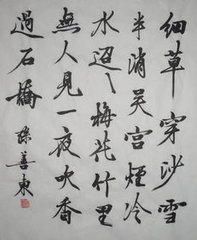 細草穿沙雪
半消吴宫煙冷
水迢〻梅花竹里
無人見一夜吹香
過石橋
孫善東